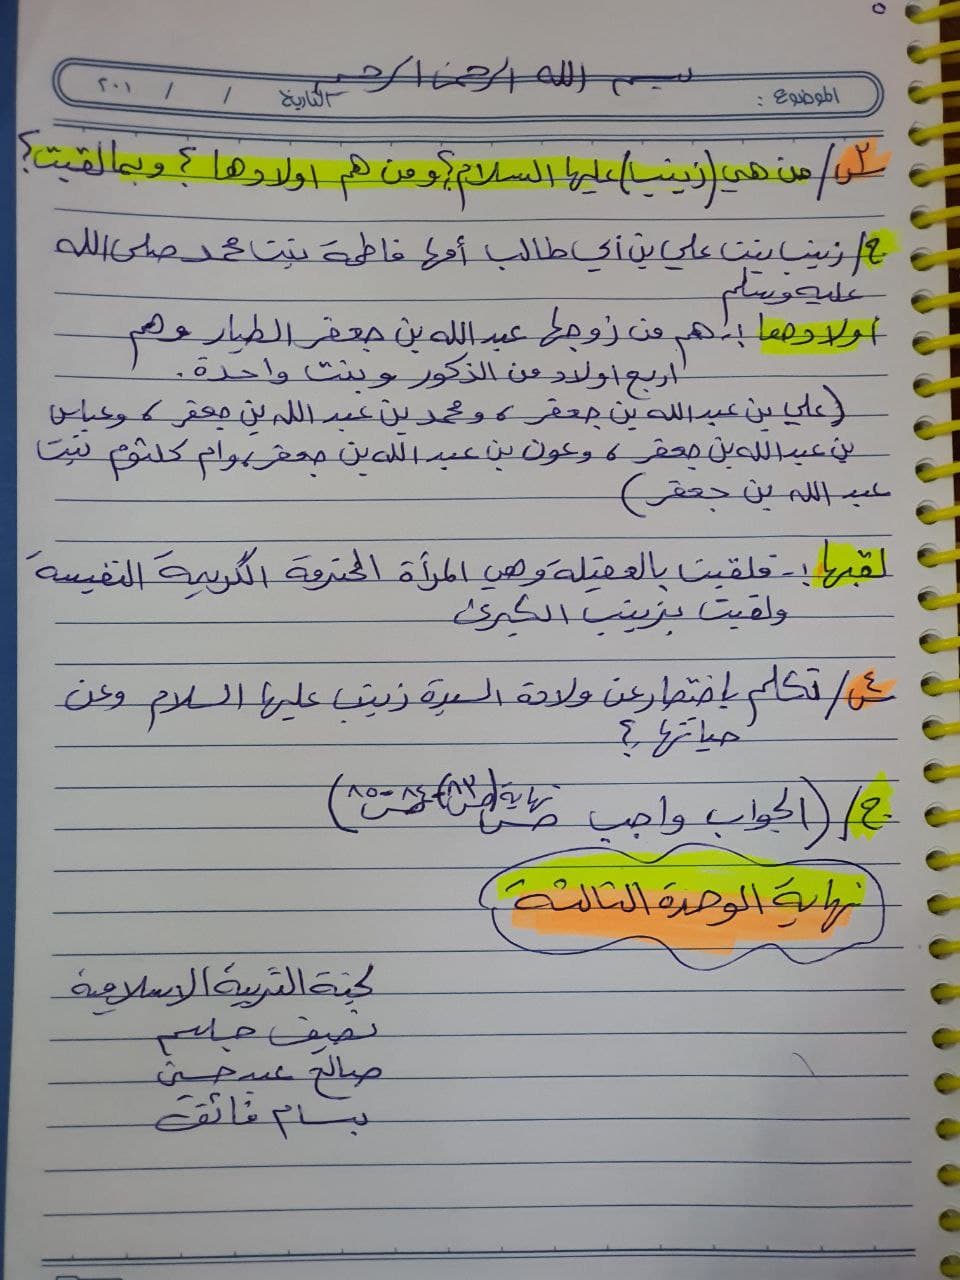 ٥
بسم الله الرحمن الرحيم
الموضوع : التاريخ / / ٢٠١
س٢/ من هي (زينب) عليها السلام؟ ومن هم اولادها ؟ وبما لقبت؟
ج/ زينب بنت علي بن أبي طالب أمها فاطمة بنت محمد صلى الله
عليه وسلم
أولادها :- هم من زوجها عبد الله بن جعفر الطيار وهم
اربع اولاد من الذكور وبنت واحدة .
(علي بن عبد الله بن جعفر ، ومحمد بن عبد الله بن جعفر ، وعباس
بن عبد الله بن جعفر ، وعون بن عبد الله بن جعفر ، وام كلثوم بنت
عبد الله بن جعفر )
لقبها :- فلقبت بالعقيلة وهي المرأة المحترمة الكريمة النفيسة
ولقبت بزينب الكبرى
س٤/ تكلم باختصار عن ولادة السيدة زينب عليها السلام وعن
حياتها ؟
ج/ (الجواب واجب نهاية ص(٨٣)+ص٨٤-٨٥)
نهاية الوحدة الثالثة
لجنة التربية الاسلامية
نصيف جاسم
صالح عبد حسن
بسام فائق